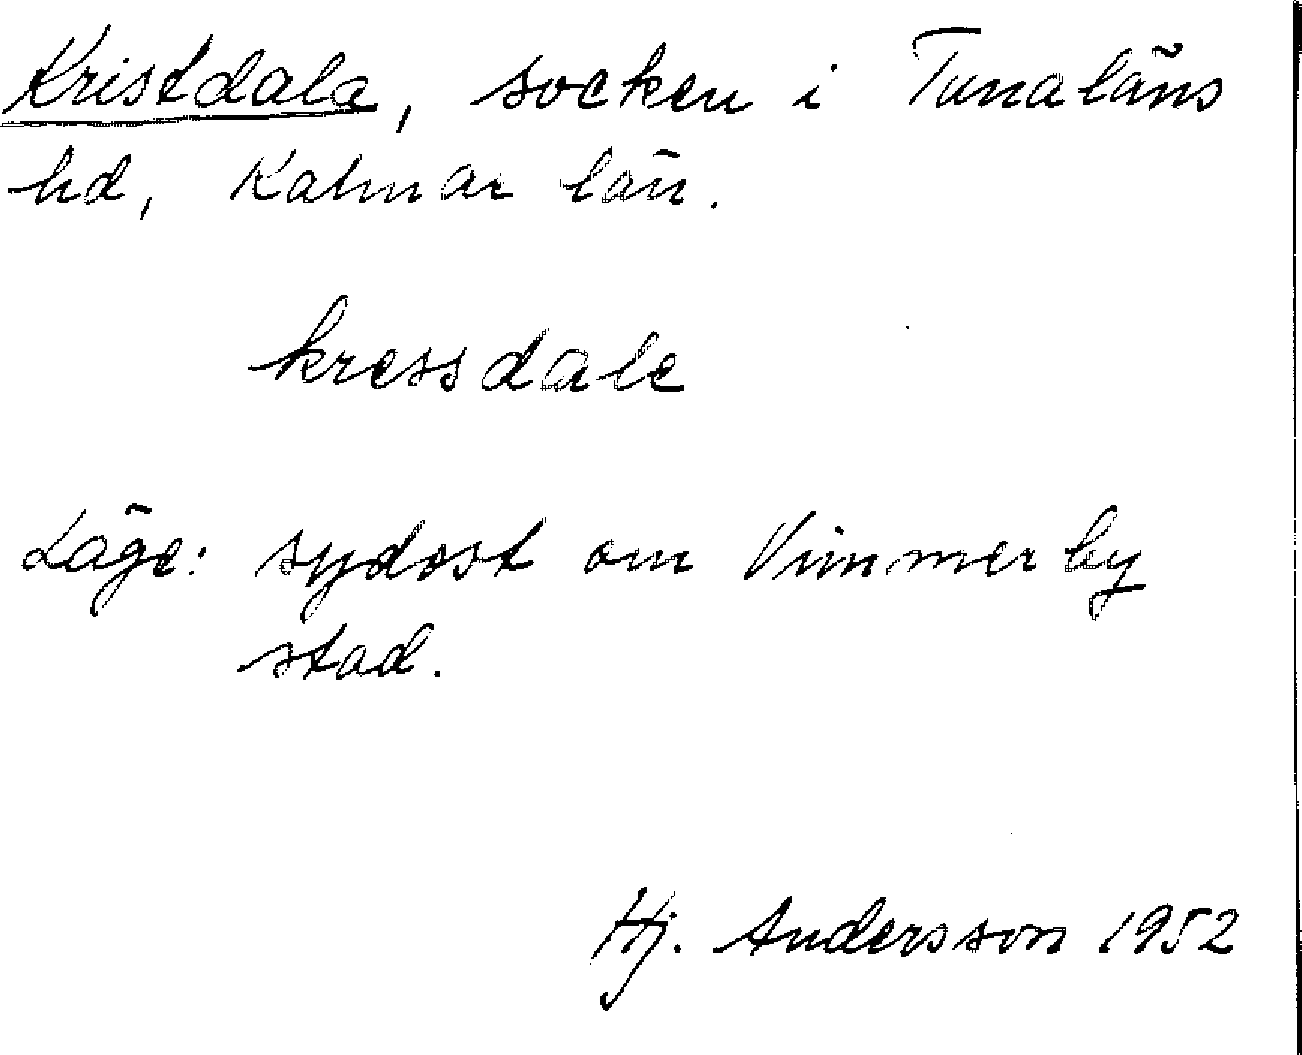 Kristdala, socken i Tunaläns
hd, Kalmar län.
kressdale
Läge: sydost om Vimmerby
stad.
Hj. Andersson 1952